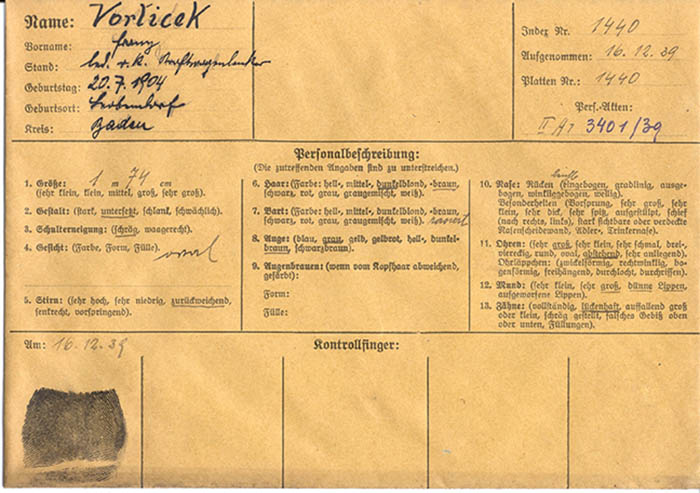 Name: Vorlicek
Vorname: Franz
Stand: led. r. k. Kraftwagenlenker
Geburtstag: 20.7.1904
Geburtsort: Leobendorf
Kreis: Baden
Index Nr. 1440
Aufgenommen: 16.12.39
Platten Nr.: 1440
Pers.-Akten:
II Ar 3401/39
Personalbeschreibung:
(Die zutreffenden Angaben sind zu unterstreichen.)
1. Größe: 1 m 74 cm
(sehr klein, klein, mittel, groß, sehr groß).
2. Gestalt: (stark, untersetzt, schlank, schwächlich).
3. Schulterneigung: (schräg, waagerecht).
4. Gesicht: (Farbe, Form, Fülle). oval
5. Stirn: (sehr hoch, sehr niedrig, zurückweichend,
senkrecht, vorspringend).
6. Haar: (Farbe: hell-, mittel-, dunkelblond, -braun,
schwarz, rot, grau, graugemischt, weiß).
7. Bart: (Farbe: hell-, mittel-, dunkelblond, -braun,
schwarz, rot, grau, graugemischt, weiß). rasiert
8. Auge: (blau, grau, gelb, gelbrot, hell-, dunkel-
braun, schwarzbraun).
9. Augenbrauen: (wenn vom Kopfhaar abweichend,
gefärbt):
Form:
Fülle:
10. Nase: Rücken (eingebogen, gradlinig, ausge-
bogen, winkliggebogen, wellig).
Besonderheiten (Vorsprung, sehr groß, sehr
klein, sehr dick, sehr spitz, aufgestülpt, schief
(nach rechts, links), stark sichtbare oder verdeckte
Nasenscheidewand, Adler-, Trinkernase).
11. Ohren: (sehr groß, sehr klein, sehr schmal, drei-
viereckig, rund, oval, abstehend, sehr anliegend).
Ohrläppchen: (zwickelförmig, rechtwinklig, bo-
genförmig, freihängend, durchlocht, durchrissen).
12. Mund: (sehr klein, sehr groß, dünne Lippen,
aufgeworfene Lippen).
13. Zähne: (vollständig, lückenhaft, auffallend groß
oder klein, schräg gestellt, falsches Gebiß oben
oder unten, Füllungen).
Am: 16.12.39
Kontrollfinger: